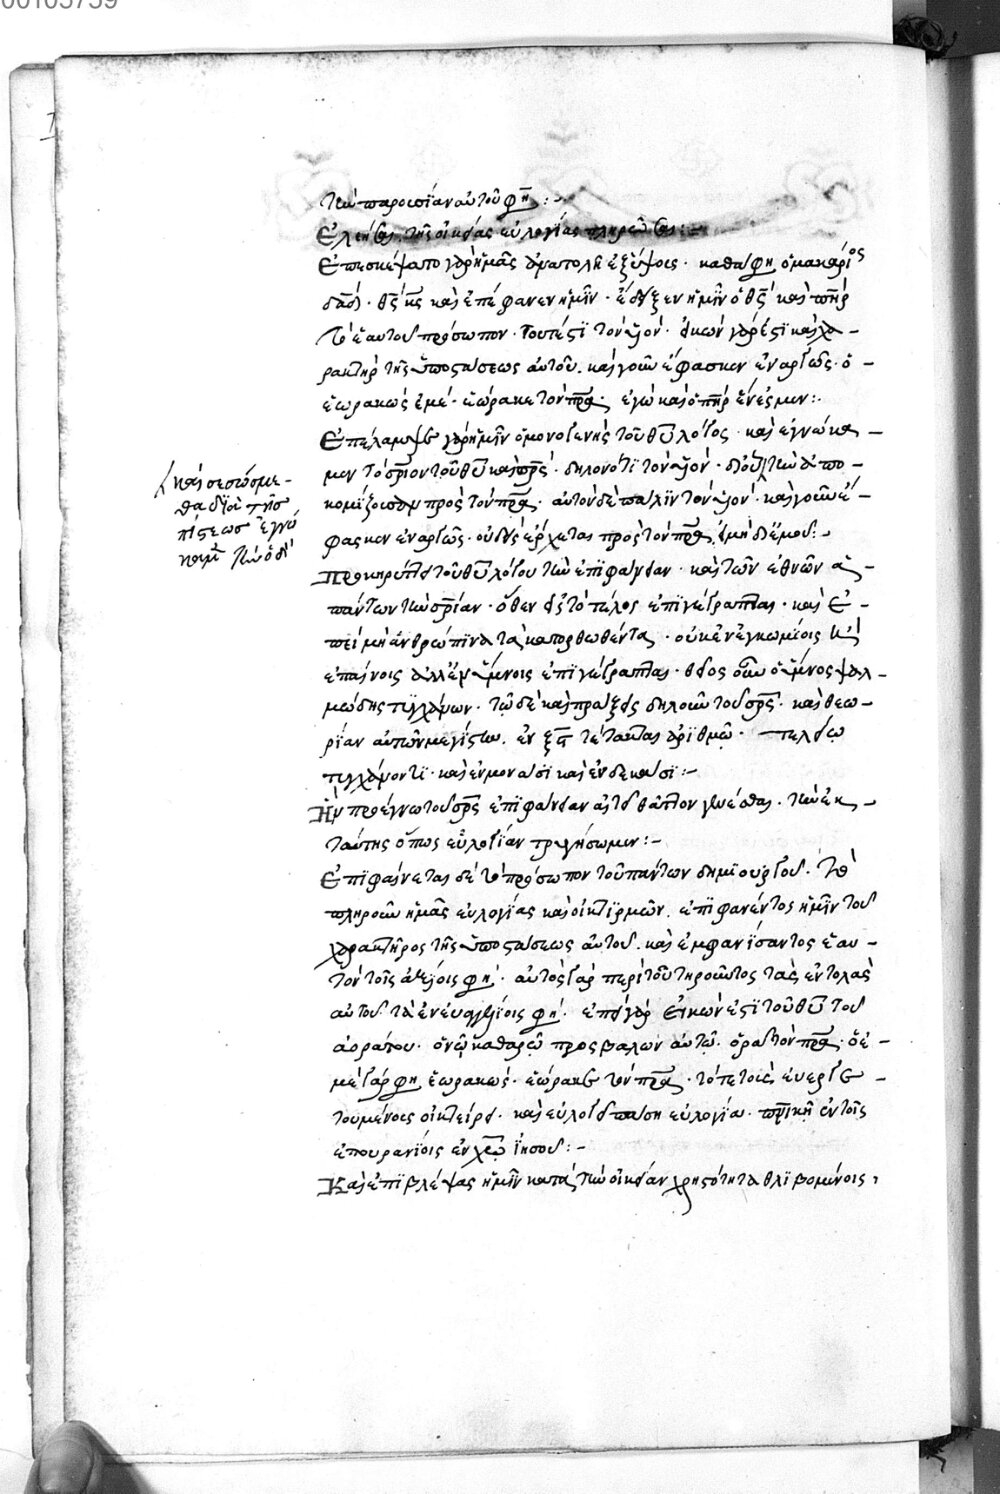 00103759
τὴν παρουσίαν αὐτοῦ φη̅ :~
Ἐλεήσας, τῆς οἰκείας εὐλογίας πληρώσας :~
Ἐπεσκέψατο γὰρ ἡμᾶς ἀνατολὴ ἐξ ὕψους · καθά φη ὁ μακάριος
δα̅δ · θς̅ κς̅ καὶ ἐπέφανεν ἡμῖν · ἔδειξεν ἡμῖν ὁ θς̅ καὶ πη̅ρ
τὸ ἑαυτοῦ πρόσωπον · τουτέστι τὸν υἱόν · εἰκὼν γάρ ἐστι καὶ χα-
ρακτὴρ τῆς ὑποστάσεως αὐτοῦ · καὶ γοῦν ἔφασκεν ἐναργῶς · ὁ -
ἑωρακὼς ἐμέ · ἑώρακε τὸν πρ̅α · ἐγὼ καὶ ὁ πη̅ρ ἕν ἐσμεν :·
Ἐπέλαμψε γὰρ ἡμῖν ὁ μονογενὴς τοῦ θυ̅ λόγος · καὶ ἐγνώκα -
μεν τὸ σρ̅ιον τοῦ θυ̅ καὶ πρ̅ς · δηλονότι τὸν υἱόν · ὁδὸν τὴν ἀπο -
κομίζουσαν πρὸς τὸν πρ̅α · αὐτὸν δὲ πάλιν τὸν υἱόν · καὶ γοῦν ἔ -
φασκεν ἐναργῶς · οὐδεὶς ἔρχεται πρὸς τὸν πρ̅α, εἰ μὴ δι' ἐμοῦ :-
Προκηρύττει τοῦ θυ̅ λόγου τὴν ἐπιφάνειαν · καὶ τῶν ἐθνῶν ἁ -
πάντων τὴν σρ̅ίαν · ὅθεν εἰς τὸ τέλος ἐπιγέγραπται · καὶ ἐ -
πεὶ μὴ ἀνθρώπινα τὰ κατορθωθέντα · οὐκ ἐν ἐγκωμίοις καὶ
ἐπαίνοις ἀλλ' ἐν ὕμνοις ἐπιγέγραπται · θεῖος οὖν ὁ ὕμνος ψαλ -
μώδης τυγχάνων · τῷ δὲ καὶ πράξεις δηλοῦν τοῦ σρ̅ς · καὶ θεω -
ρίαν αὐτῶν μεγίστην · ἐν ξς̅ τέτακται ἀριθμῷ · τελείῳ
τυγχάνοντι · καὶ ἐν μονάσι καὶ ἐν δεκάσι :-
Ἣν προέγνω τοῦ σρ̅ς ἐπιφάνειαν αἰτεῖ θᾶττον γενέσθαι · τὴν ἐκ -
ταύτης ὅπως εὐλογίαν τρυγήσωμεν :-
Ἐπιφαίνεται δὲ τὸ πρόσωπον τοῦ πάντων δημιουργοῦ · τὸ
πληροῦν ἡμᾶς εὐλογίας καὶ οἰκτιρμῶν · ἐπιφανέντος ἡμῖν τοῦ
χαρακτῆρος τῆς ὑποστάσεως αὐτοῦ · καὶ ἐμφανίσαντος ἑαυ -
τὸν τοῖς ἀξίοις φη · αὐτὸς γὰρ περὶ τοῦ τηροῦντος τὰς ἐντολὰς
αὐτοῦ τὰ ἐν εὐαγγελίοις φη · ἐπεὶ γὰρ εἰκών ἐστι τοῦ θυ̅ τοῦ
ἀοράτου · ὁ νῷ καθαρῷ προσβαλὼν αὐτῷ · ὁρᾷ τὸν πρ̅α · ὁ ἐ -
μὲ γάρ φη ἑωρακώς · ἑώρακε τὸν πρ̅α · τότε τοὺς εὐεργε -
τουμένους οἰκτείρει · καὶ εὐλογεῖ πάσῃ εὐλογίᾳ · πν̅ικῇ ἐν τοῖς
ἐπουρανίοις ἐν χω̅ ἰησοῦ :-
Καὶ ἐπιβλέψας ἡμῖν κατὰ τὴν οἰκείαν χρηστότητα θλιβομένοις,
καὶ σεσώσμε-
θα διὰ τῆς
πίστεως ἔγνω
καμεν τὴν ὁδὸν